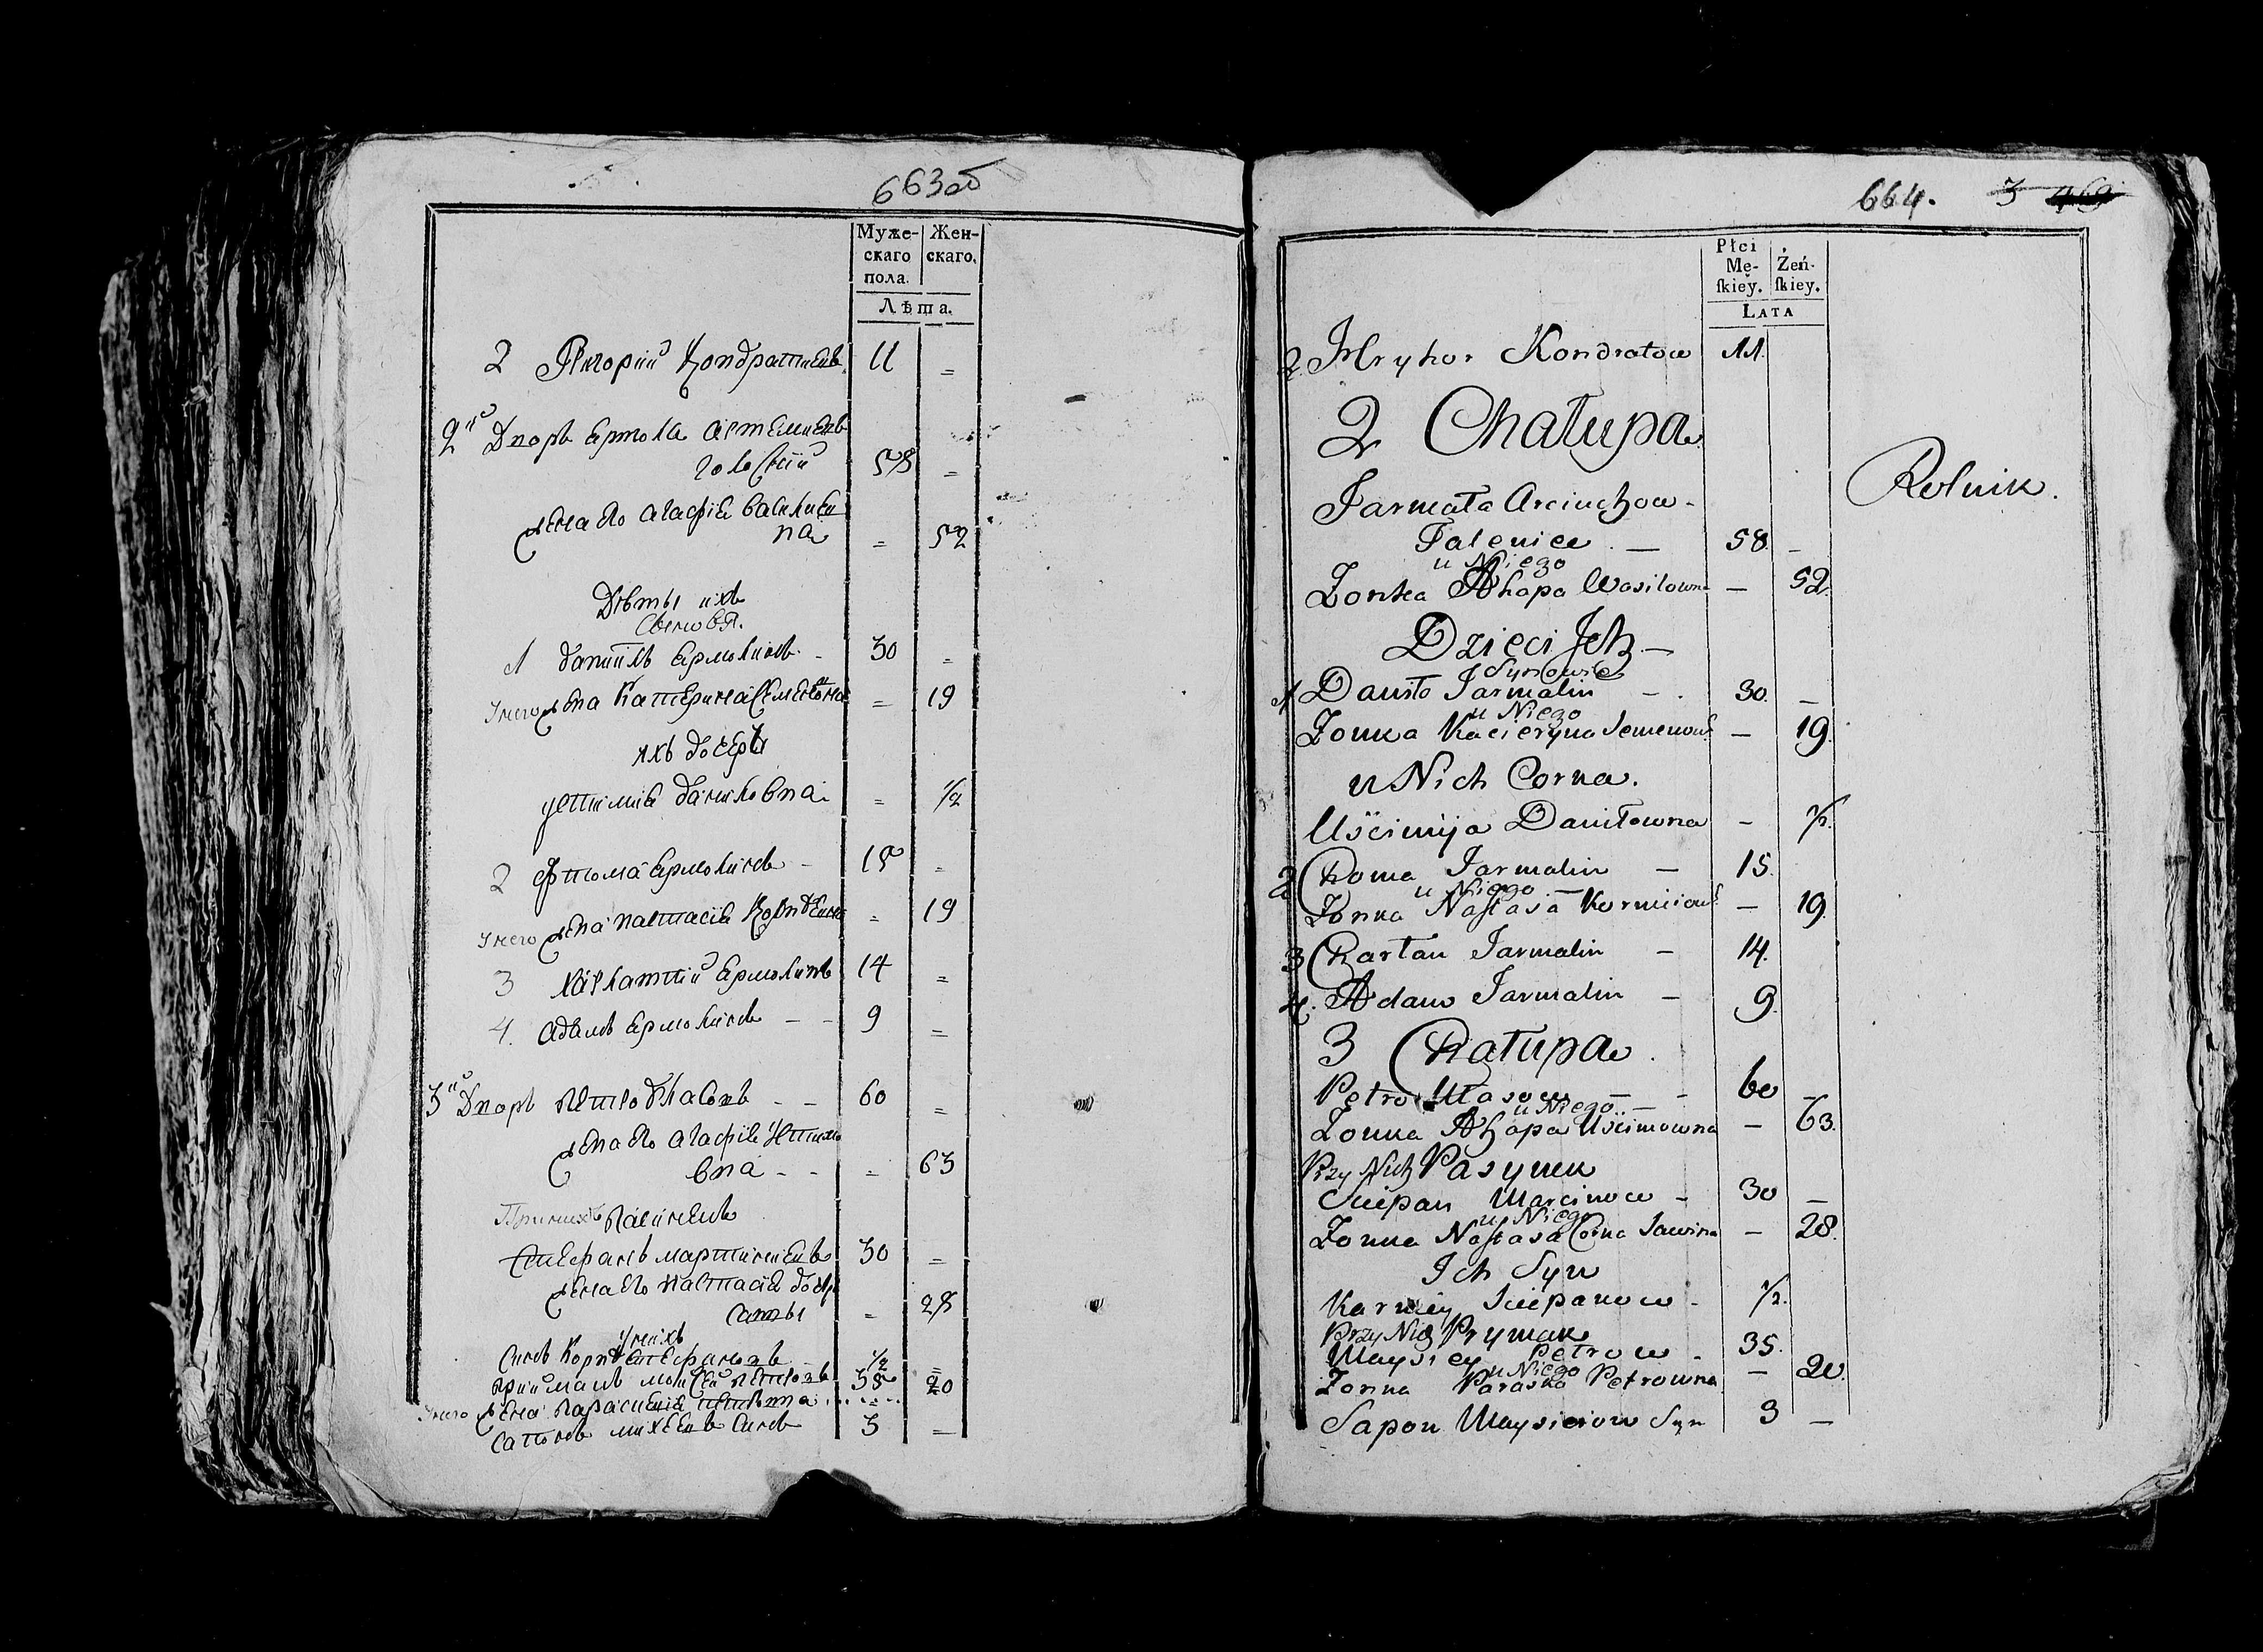 663об
Муже-
скаго
пола.
Жен-
скаго.
Лѣта.
2 Григорій Кондратиевъ 11 =
2й Дворъ Ермола Артемиевъ
58 =
жена его Агафiя Василиев
на = 52
Дѣти ихъ
Сыновья.
1 Данiилъ Ермолинъ - 30 =
у него жена Катерина Семенова = 19
ихъ дочерь
Устимия Даниловна = 1/2
2 Фтома Ермолинъ - 15 =
у него жена Настасiя = 19
3 Харлатпiй Ермолинъ 14 =
4. Адамъ Ермолинъ - - 9 =
3й Дворъ Петръ Власовъ - - 60 =
жена его Агафiя Устимо
вна - - = 63
При нихъ Пасынокъ
Стефанъ Мартиновъ 30 =
жена его Настасiя дочь
= 28
у нихъ
Сынъ Корней Стефановъ 1/2 =
Приймакъ Мойсей Петровъ 35 =
у него жена Парасковiя Петровна = 20
Сапонъ Сынъ 3 =
664. 3 469
Płci
Mę-
ſkiey.
Żeń-
ſkiey.
LATA
2 Hryhor Kondratow 11.
2 Chałupa
Jarmoła Arciuchow -
58. -
Rolnik.
u Niego
Żonka Ahapa Wasilowna - 52.
Dzieci Ich -
Synowie
1 Daniło Jarmalin - 30. -
u Niego
Żonka Kacieryna Semenow - 19.
u Nich Corka.
Uścimija Daniłowna - 1/2.
2 Choma Jarmalin - 15.
u Niego -
Żonka Nastasa - 19.
3 Chartan Jarmalin - 14.
4. Adam Jarmalin - 9.
3 Chałupa.
Petro Ułasow - - 60 -
u Niego -
Żonka Ahapa Uścimowna - 63.
Przy Nich Pasynek
Sciepan Marcinow - 30 -
u Niego
Żonka Nastasa Corka - 28.
Ich Syn
Karniey Sciepanow - 1/2.
Przy Nich Prymak
Maysiey Petrow - 35.
u Niego
Żonka Paraska Petrowna - 20.
Sapon Maysieiow Syn 3 -